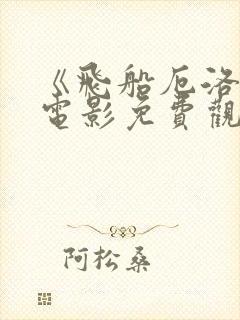 《飛船厄洛
電影免費觀
阿松桑